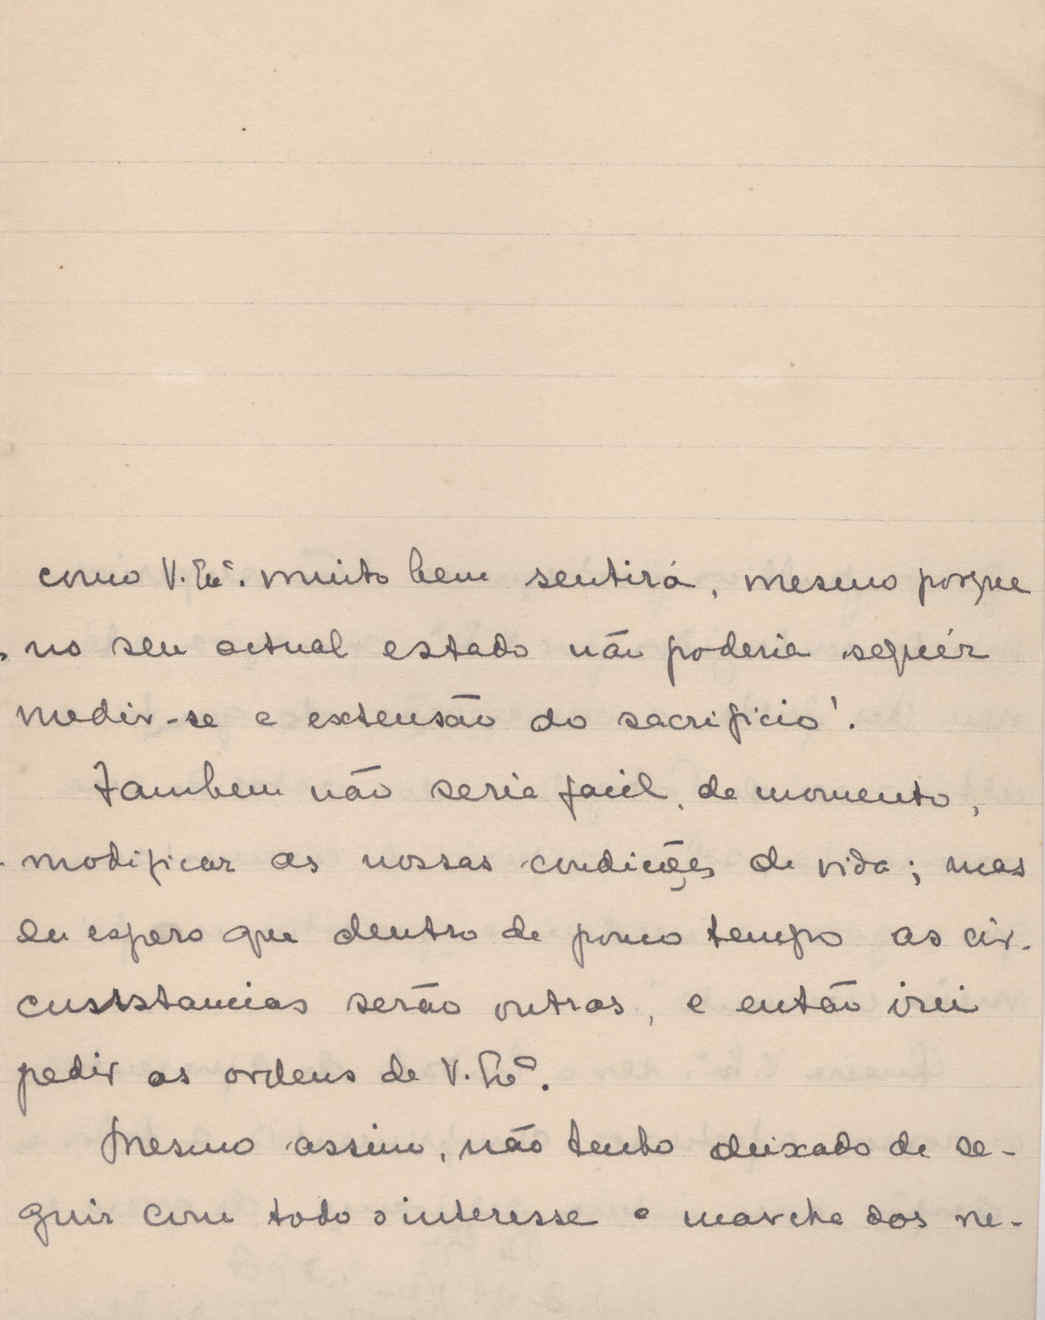 como V. Exª. muito bem sentirá, mesmo porque
no seu actual estado não poderia sequér
medir-se a extensão do sacrificio'.
Tambem não seria facil, de momento,
modificar as nossas condições de vida; mas
eu espero que dentro de pouco tempo as cir-
cusístancias serão outras, e então irei
pedir as ordens de V. Exª.
Mesmo assim, não tenho deixado de se-
guir com todo o interesse a marcha dos ne-